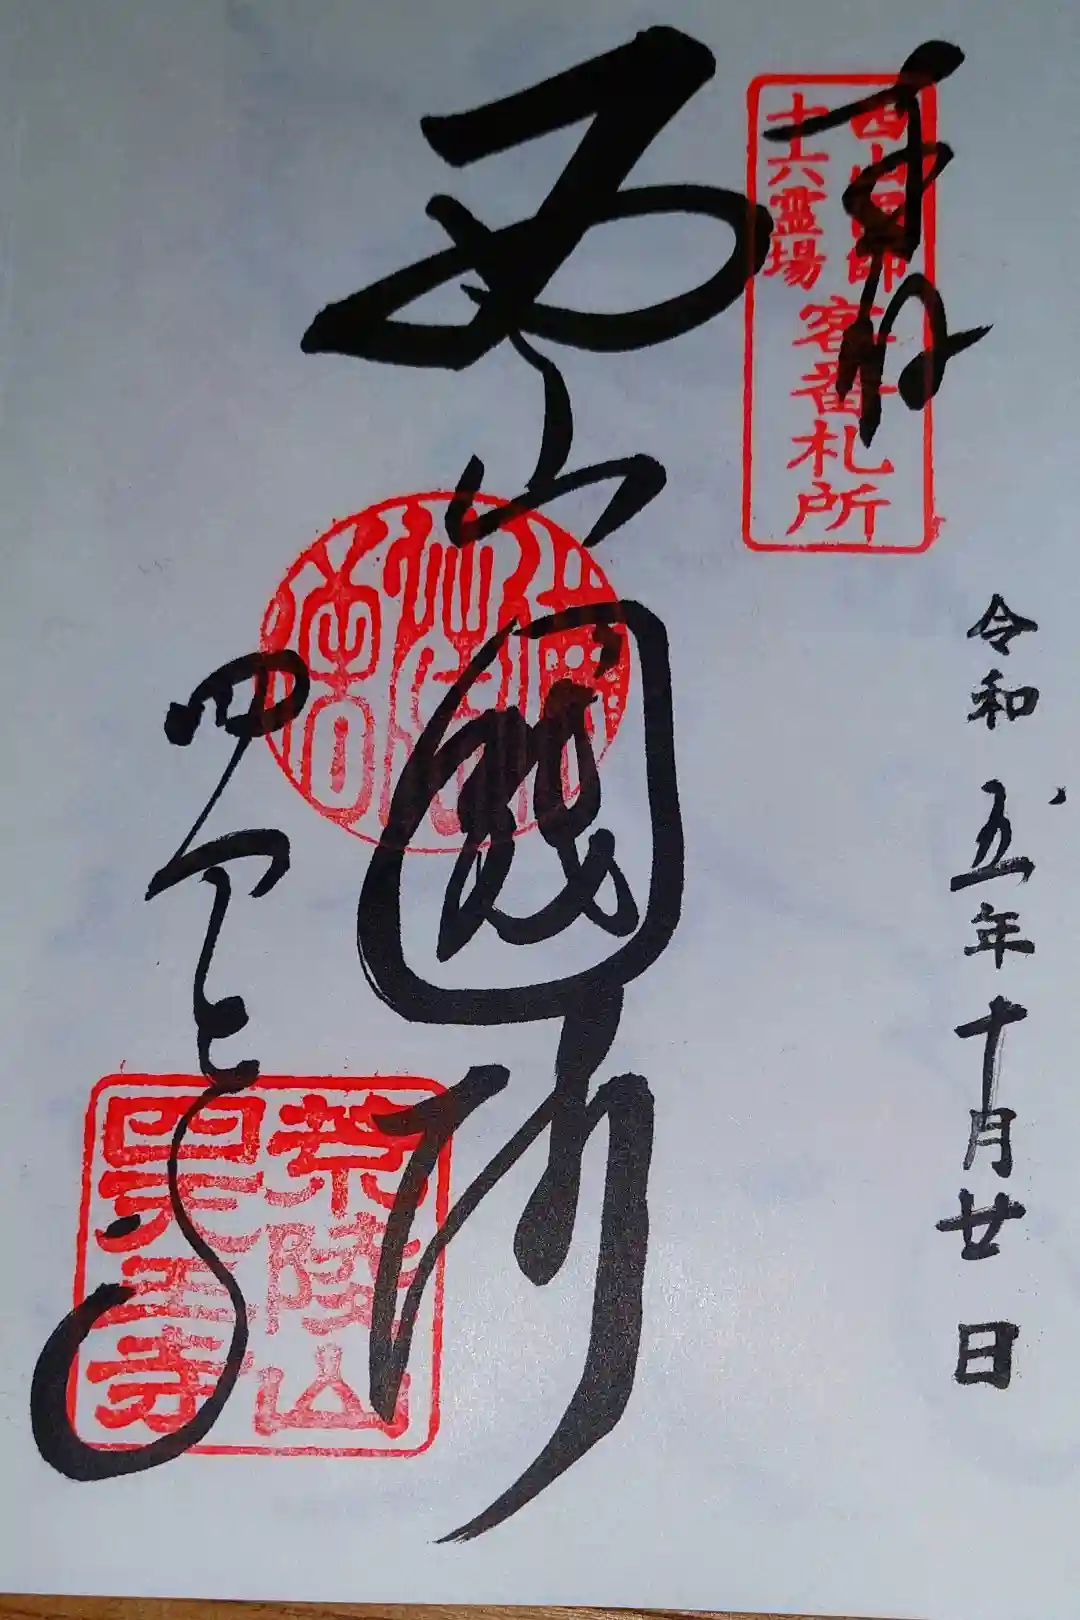 奉拝
西山国師
十六霊場
客番札所
令和五年十月廿日
西山国師
四天王寺
栄陵山
四天王寺